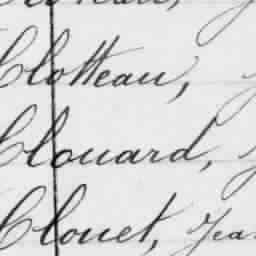 Clotteau,
Clouard,
Clouet, Jea